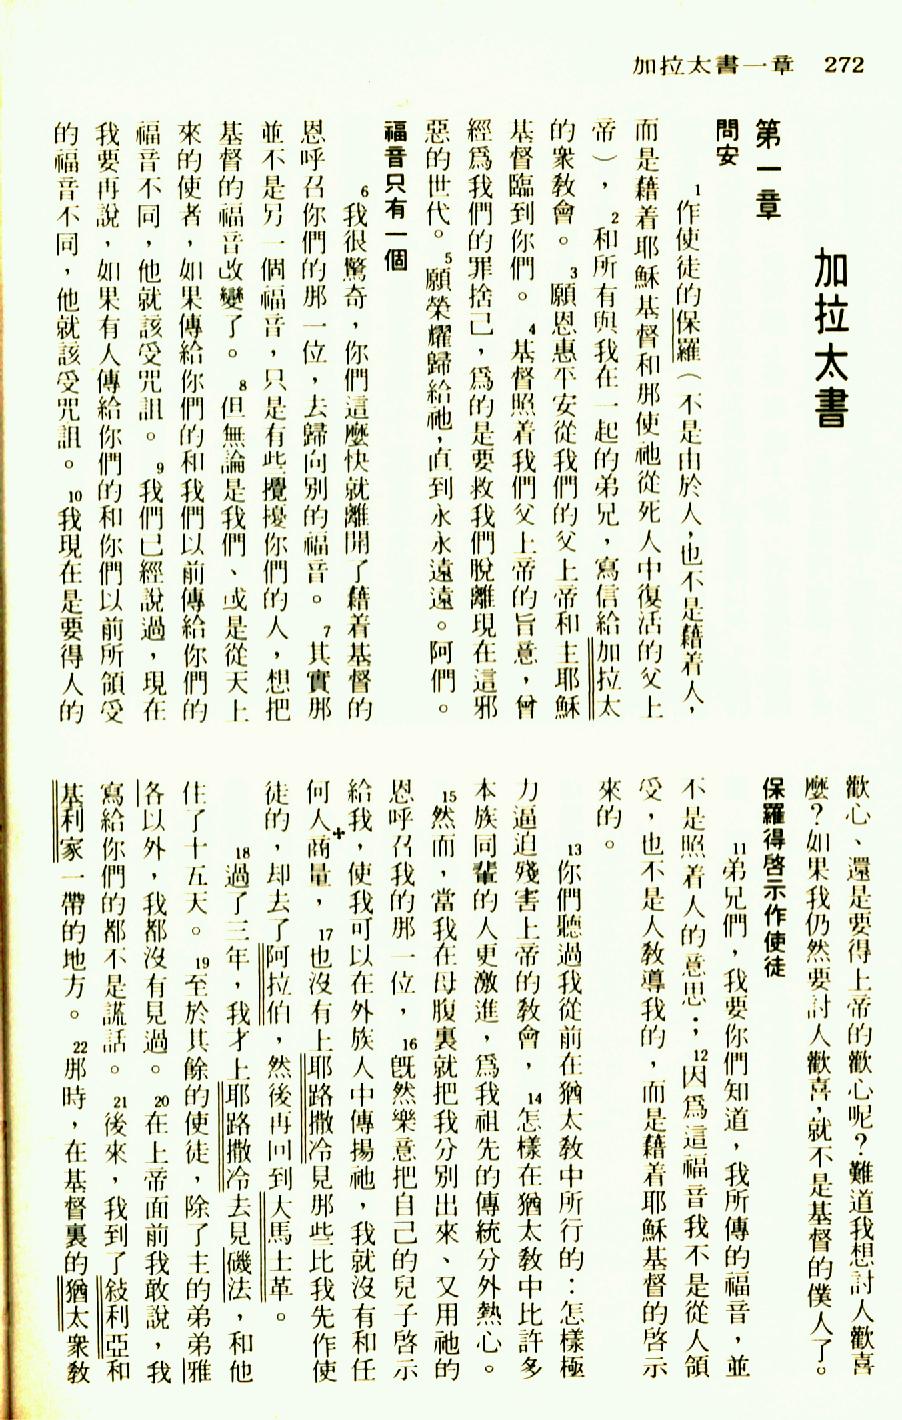 加拉太書一章　272
加拉太書
第一章
問安
1作使徒的保羅（不是由於人，也不是藉着人，
而是藉着耶穌基督和那使祂從死人中復活的父上
帝），2和所有與我在一起的弟兄，寫信給加拉太
的衆教會。3願恩惠平安從我們的父上帝和主耶穌
基督臨到你們。4基督照着我們父上帝的旨意，曾
經爲我們的罪捨己，爲的是要救我們脫離現在這邪
惡的世代。5願榮耀歸給祂，直到永永遠遠。阿們。
福音只有一個
6我很驚奇，你們這麼快就離開了藉着基督的
恩呼召你們的那一位，去歸向別的福音。7其實那
並不是另一個福音，只是有些攪擾你們的人，想把
基督的福音改變了。8但無論是我們、或是從天上
來的使者，如果傳給你們的和我們以前傳給你們的
福音不同，他就該受咒詛。9我們已經說過，現在
我要再說，如果有人傳給你們的和你們以前所領受
的福音不同，他就該受咒詛。10我現在是要得人的
歡心、還是要得上帝的歡心呢？難道我想討人歡喜
麼？如果我仍然要討人歡喜，就不是基督的僕人了。
保羅得啓示作使徒
11弟兄們，我要你們知道，我所傳的福音，並
不是照着人的意思；12因爲這福音我不是從人領
受，也不是人教導我的，而是藉着耶穌基督的啓示
來的。
13你們聽過我從前在猶太教中所行的：怎樣極
力逼迫殘害上帝的教會，14怎樣在猶太教中比許多
本族同輩的人更激進，爲我祖先的傳統分外熱心。
15然而，當我在母腹裏就把我分別出來、又用祂的
恩呼召我的那一位，16旣然樂意把自己的兒子啓示
給我，使我可以在外族人中傳揚祂，我就沒有和任
何人商量，17也沒有上耶路撒冷見那些比我先作使
徒的，却去了阿拉伯，然後再回到大馬士革。
18過了三年，我才上耶路撒冷去見磯法，和他
住了十五天。19至於其餘的使徒，除了主的弟弟雅
各以外，我都沒有見過。20在上帝面前我敢說，我
寫給你們的都不是謊話。21後來，我到了敍利亞和
基利家一帶的地方。22那時，在基督裏的猶太衆教